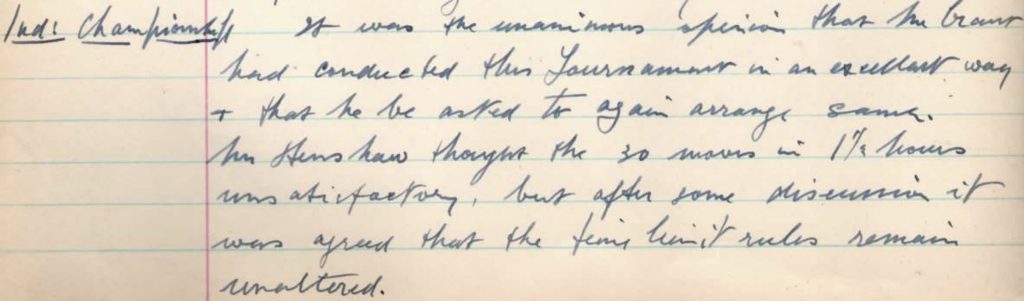 Ind: Championship It was the unanimous opinion that Mr Grant
had conducted this Tournament in an excellent way
+ that he be asked to again arrange same.
Mr Henshaw thought the 30 moves in 1½ hours
unsatisfactory, but after some discussion it
was agreed that the time limit rules remain
unaltered.